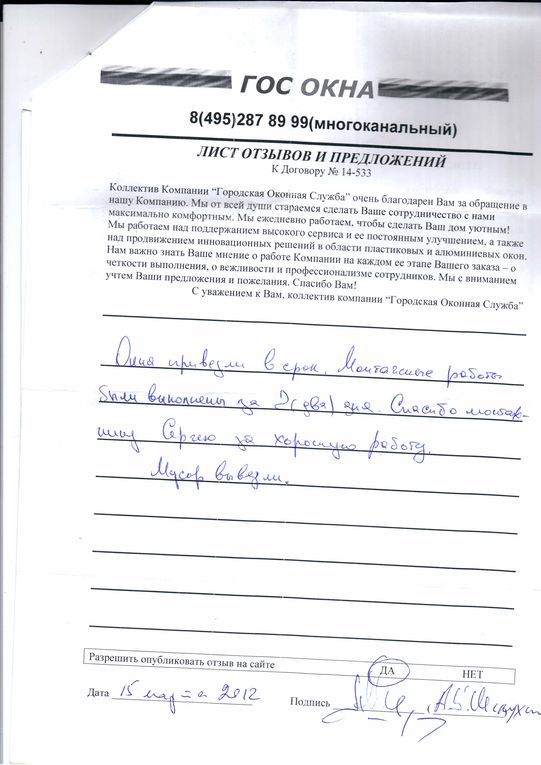 ГОС ОКНА
8(495)287 89 99(многоканальный)
ЛИСТ ОТЗЫВОВ И ПРЕДЛОЖЕНИЙ
К Договору № 14-533
Коллектив Компании “Городская Оконная Служба” очень благодарен Вам за обращение в
нашу Компанию. Мы от всей души стараемся сделать Ваше сотрудничество с нами
максимально комфортным. Мы ежедневно работаем, чтобы сделать Ваш дом уютным!
Мы работаем над поддержанием высокого сервиса и ее постоянным улучшением, а также
над продвижением инновационных решений в области пластиковых и алюминиевых окон.
Нам важно знать Ваше мнение о работе Компании на каждом ее этапе Вашего заказа – о
четкости выполнения, о вежливости и профессионализме сотрудников. Мы с вниманием
учтем Ваши предложения и пожелания. Спасибо Вам!
С уважением к Вам, коллектив компании “Городская Оконная Служба”
Окна привезли в срок. Монтажные работы
были выполнены за 2(два) дня. Спасибо монтаж-
нику Сергею за хорошую работу.
Мусор вывезли.
Разрешить опубликовать отзыв на сайте ДА НЕТ
Дата 15 марта 2012 Подпись